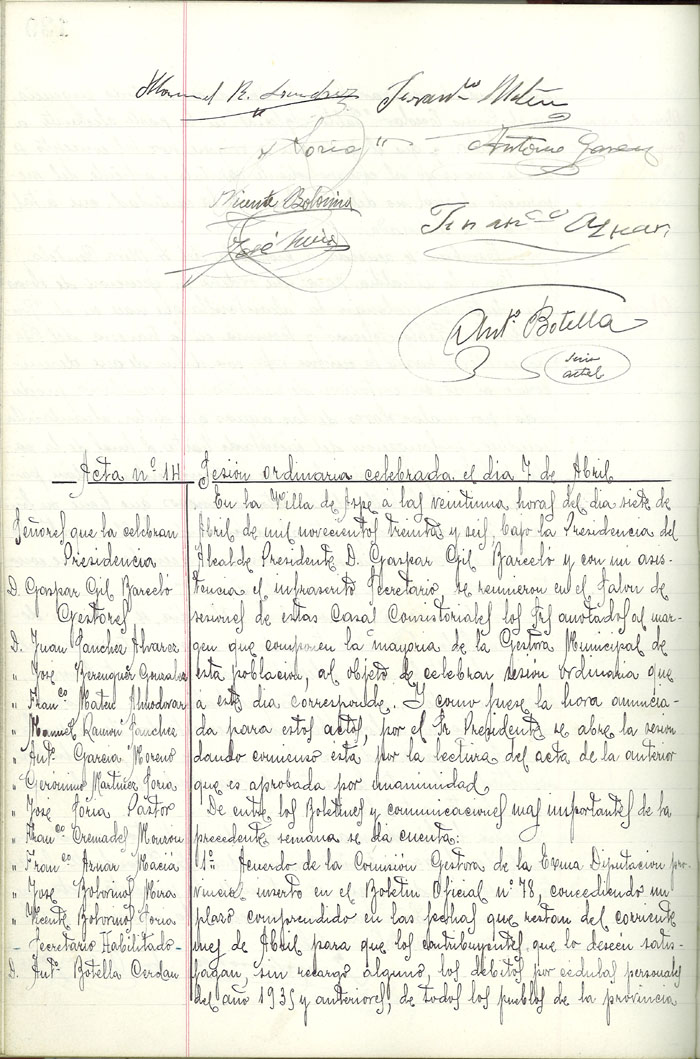 Manuel R. Sanchez
Franco Mateu
Soria
Antonio Garcia
Vicente Bolorinos
Francco Aznar
José
Anto Botella
Acta nº 14 Sesión ordinaria celebrada el dia 7 de Abril
Señores que la celebran
Presidencia
D. Gaspar Gil Barceló
Gestores
D. Juan Sanchez Alvarez
" José Berenguer Gonzalez
" Franco Mateu Almodovar
" Manuel Ramón Sanchez
" Anto Garcia Moreno
" Gerónimo Martinez Soria
" José Soria Pastor
" Franco Cremades
" Franco Aznar Maciá
" José Bolorinos Mira
" Vicente Bolorinos Soria
Secretario Habilitado
D. Anto Botella Cerdan
En la Villa de Aspe a las veintiuna horas del dia siete de
Abril de mil novecientos treinta y seis, bajo la Presidencia del
Alcalde Presidente D. Gaspar Gil Barceló y con mi asis-
tencia el infrascrito Secretario se reunieron en el Salon de
sesiones de estas Casas Consistoriales los Srs anotados al mar-
gen que componen la mayoria de la Gestora Municipal de
esta poblacion, al objeto de celebrar sesión ordinaria que
a este dia corresponde. Y como fuese la hora anuncia-
da para estos actos, por el Sr Presidente se abre la sesion
dando comienso esta por la lectura del acta de la anterior
que es aprobada por unanimidad.
De entre los Boletines y comunicaciones mas importantes de la
precedente semana se da cuenta:
1º Acuerdo de la Comisión Gestora de la Exma Diputacion pro-
vincial inserto en el Boletin Oficial nº 78, concediendo un
plaso comprendido en las fechas que restan del corriente
mes de Abril para que los contribuyentes que lo deseen satis-
fagan, sin recargo alguno, los débitos por cedulas personales
del año 1935 y anteriores, de todos los pueblos de la provincia